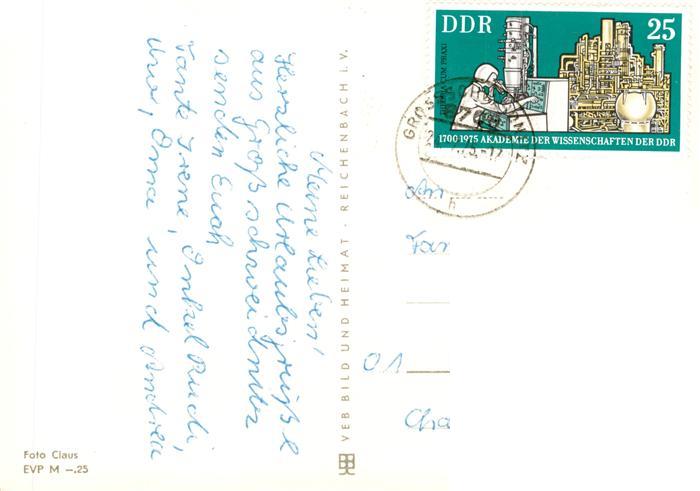 Meine Lieben!
Herzliche Urlaubsgrüße
aus Großschweidnitz
senden Euch
Tante Irene, Onkel Rudi,
Uwe, Oma und Andrea
VEB BILD UND HEIMAT · REICHENBACH I. V.
Foto Claus
EVP M –.25
DDR 25
THEORIA CUM PRAXI
1700-1975 AKADEMIE DER WISSENSCHAFTEN DER DDR
An
Fam
01
Cha